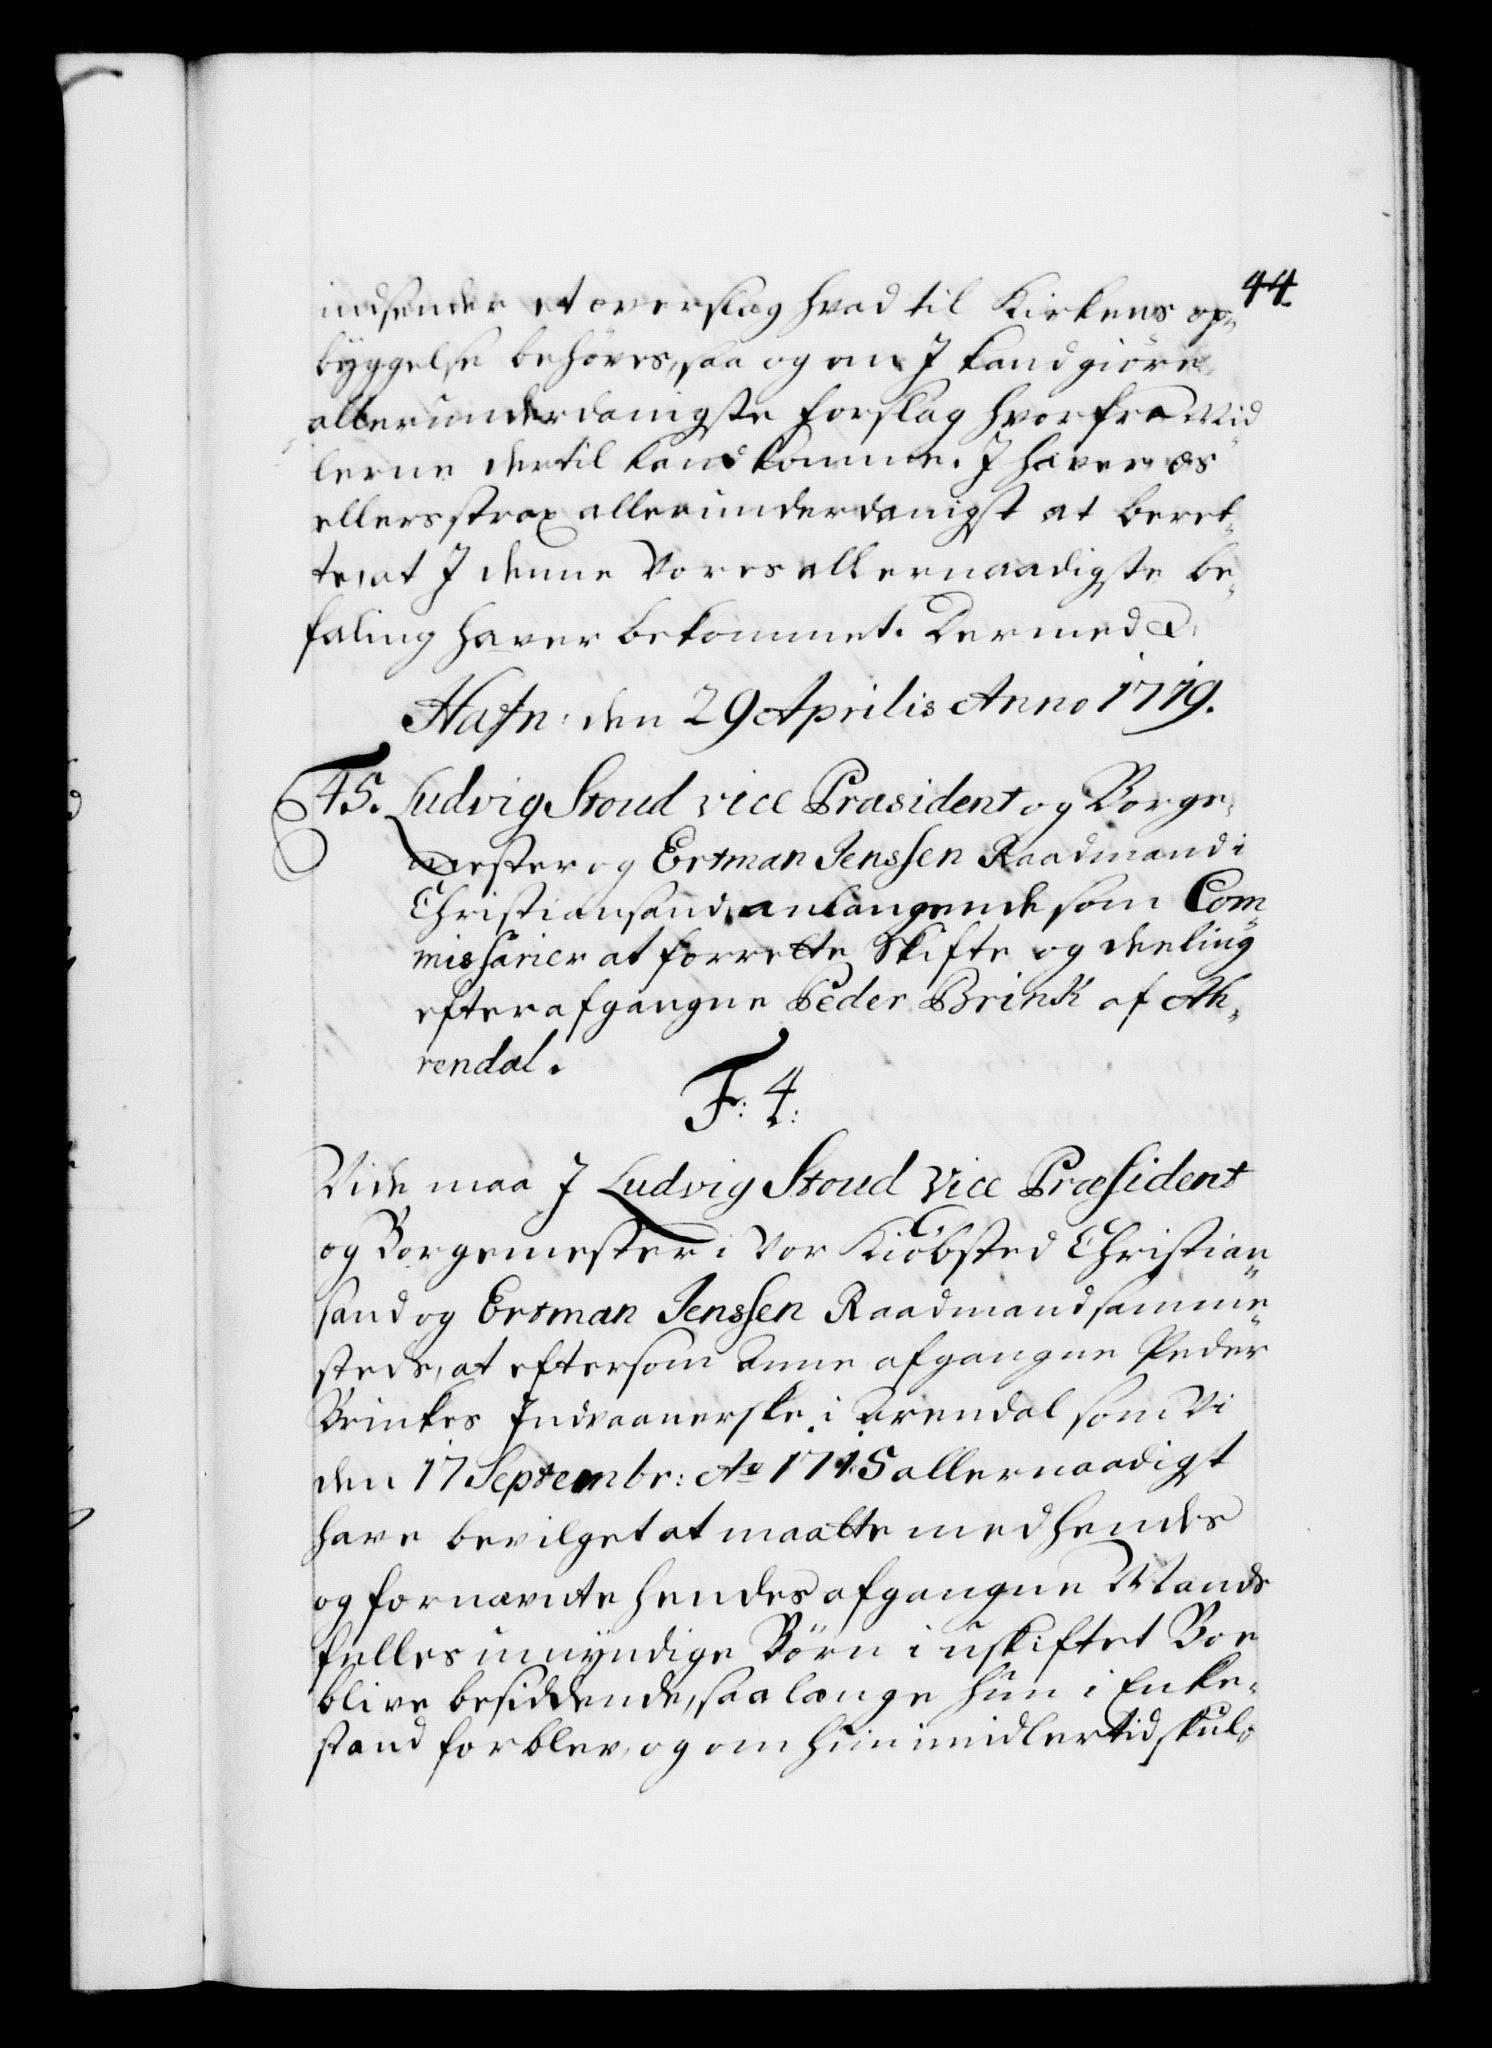 44.
indsender et overslag hvad til Kirkens op„
byggelse behöves, saa og om I kand giöre
allerunderdanigste forslag hvorfra Mid„
lerne dertil kand komme. I haver os
ellers strax allerunderdanigst at beret„
te, at I denne Vores allernaadigste be„
faling haver bekommet. Dermed &.
Hafn: den 29 Aprilis Anno 1719.
45. Ludvig Stoud vice Præsident og Borge„
mester og Ertman Jenssen Raadmand i
Christiansand, anlangende som Com„
missarier at forrette Skifte og deeling
efter afgangne Peder Brink af Ah„
rendal.
F: 4:
Vide maa I Ludvig Stoud Vice Præsident
og Borgemester i Vor Kiöbsted Christian„
sand og Ertman Jenssen Raadmand samme„
steds, at eftersom Anne afgangne Peder
Brinkes Indvaanerske i Arendal som Vi
den 17 Septembr: Ao 1715 allernaadigst
have bevilget at maatte med hendes
og fornævnte hendes afgangne Mands
felles umyndige Börn i uskiftet Boe
blive besiddende, saa længe hun i Enke„
stand forblev, og om hun imidlertid skul„